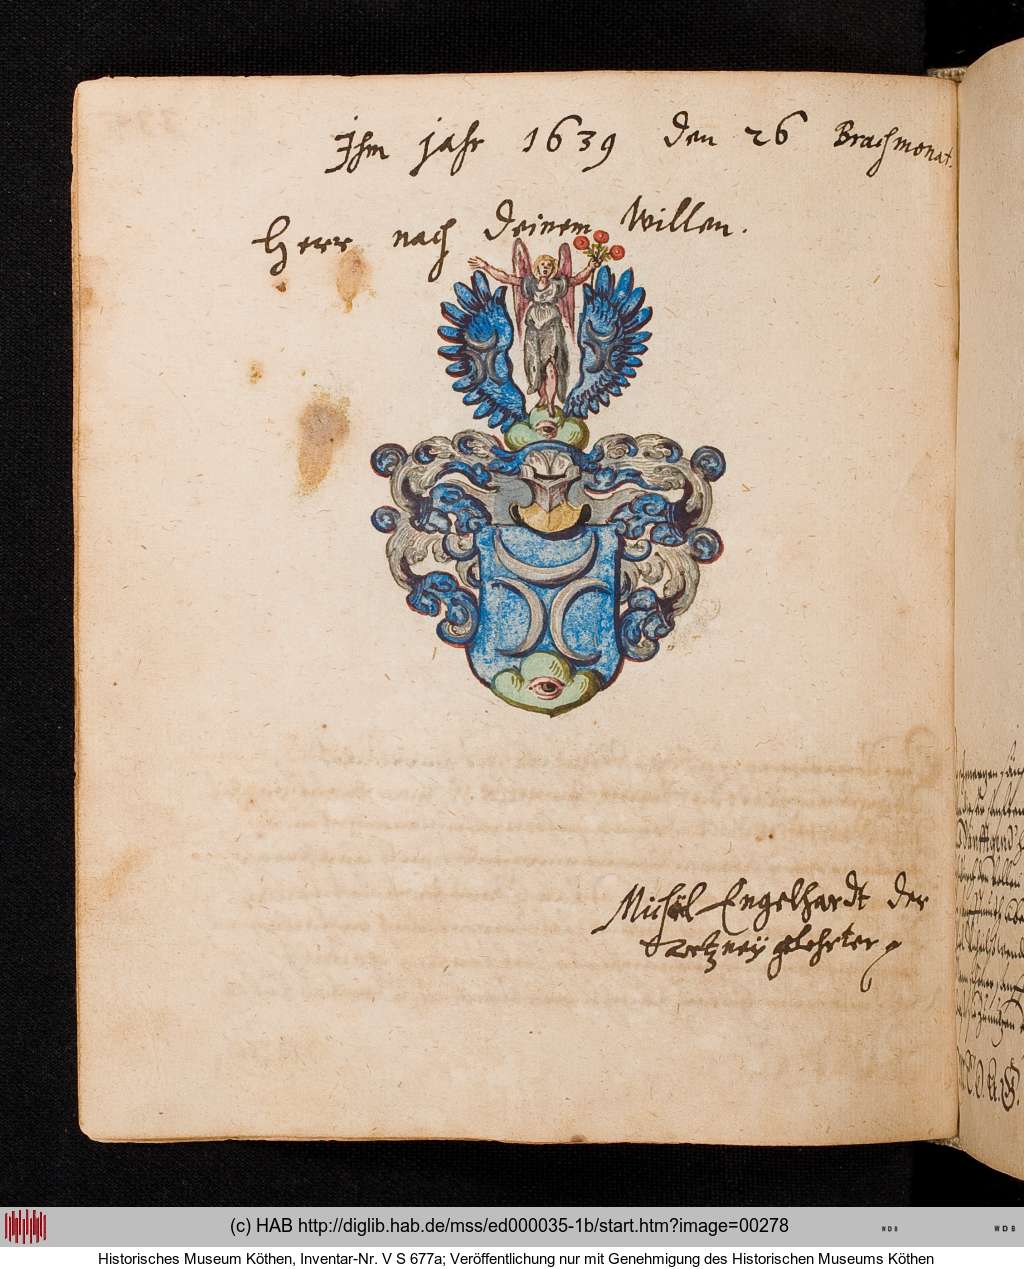 Ihm jahr 1639 den 26 Brachmonat.
Herr nach deinem Willen.
Michäl Engelhardt der
Artzneÿ gelehrter
(c) HAB http://diglib.hab.de/mss/ed000035-1b/start.htm?image=00278
WDB
WDB
Historisches Museum Köthen, Inventar-Nr. V S 677a; Veröffentlichung nur mit Genehmigung des Historischen Museums Köthen